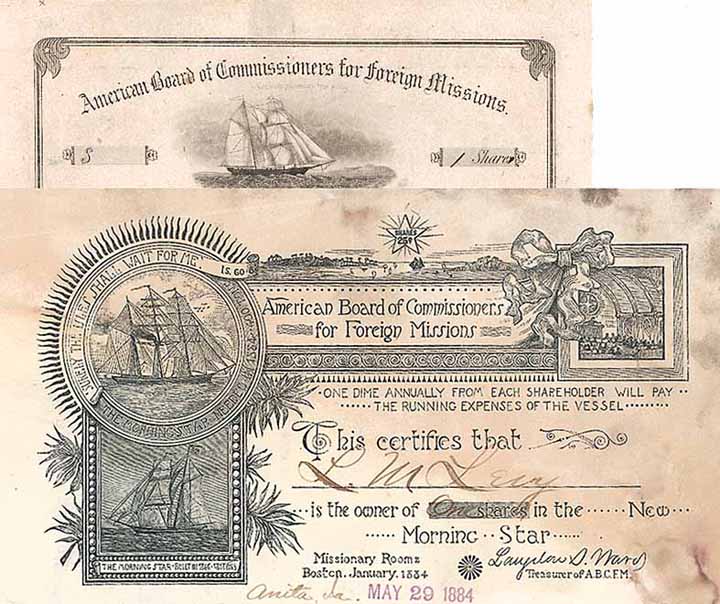 American Board of Commissioners for Foreign Missions.
S
1 Shares
SHARES
25¢
SHALL WAIT FOR ME.
IS. 60
THE MORNING STAR
American Board of Commissioners
for Foreign Missions
ONE DIME ANNUALLY FROM EACH SHAREHOLDER WILL PAY
THE RUNNING EXPENSES OF THE VESSEL
This certifies that
L. M. Levy
is the owner of One shares in the New
Morning Star
Missionary Rooms
Boston. January. 1884
Langdon S. Ward
Treasurer of A.B.C.F.M.
THE MORNING STAR
Anita, Ia. MAY 29 1884